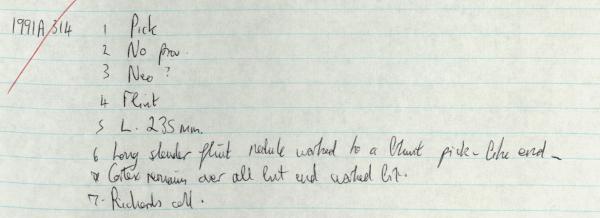 1991A 314 1 Pick
2 No prov.
3 Neo ?
4 Flint
5 L. 235mm.
6 Long slender flint nodule worked to a blunt pick-like end -
Cortex remains over all but end worked bit.
7 - Richards coll.